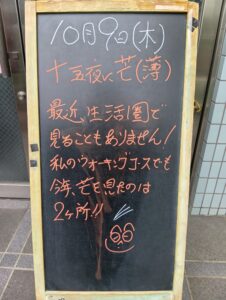 10月9日(木)
十五夜に芒(薄)
最近生活圏で
見ることもありません!
私のウォーキングコースでも
今年、芒を見たのは
2ヶ所!!